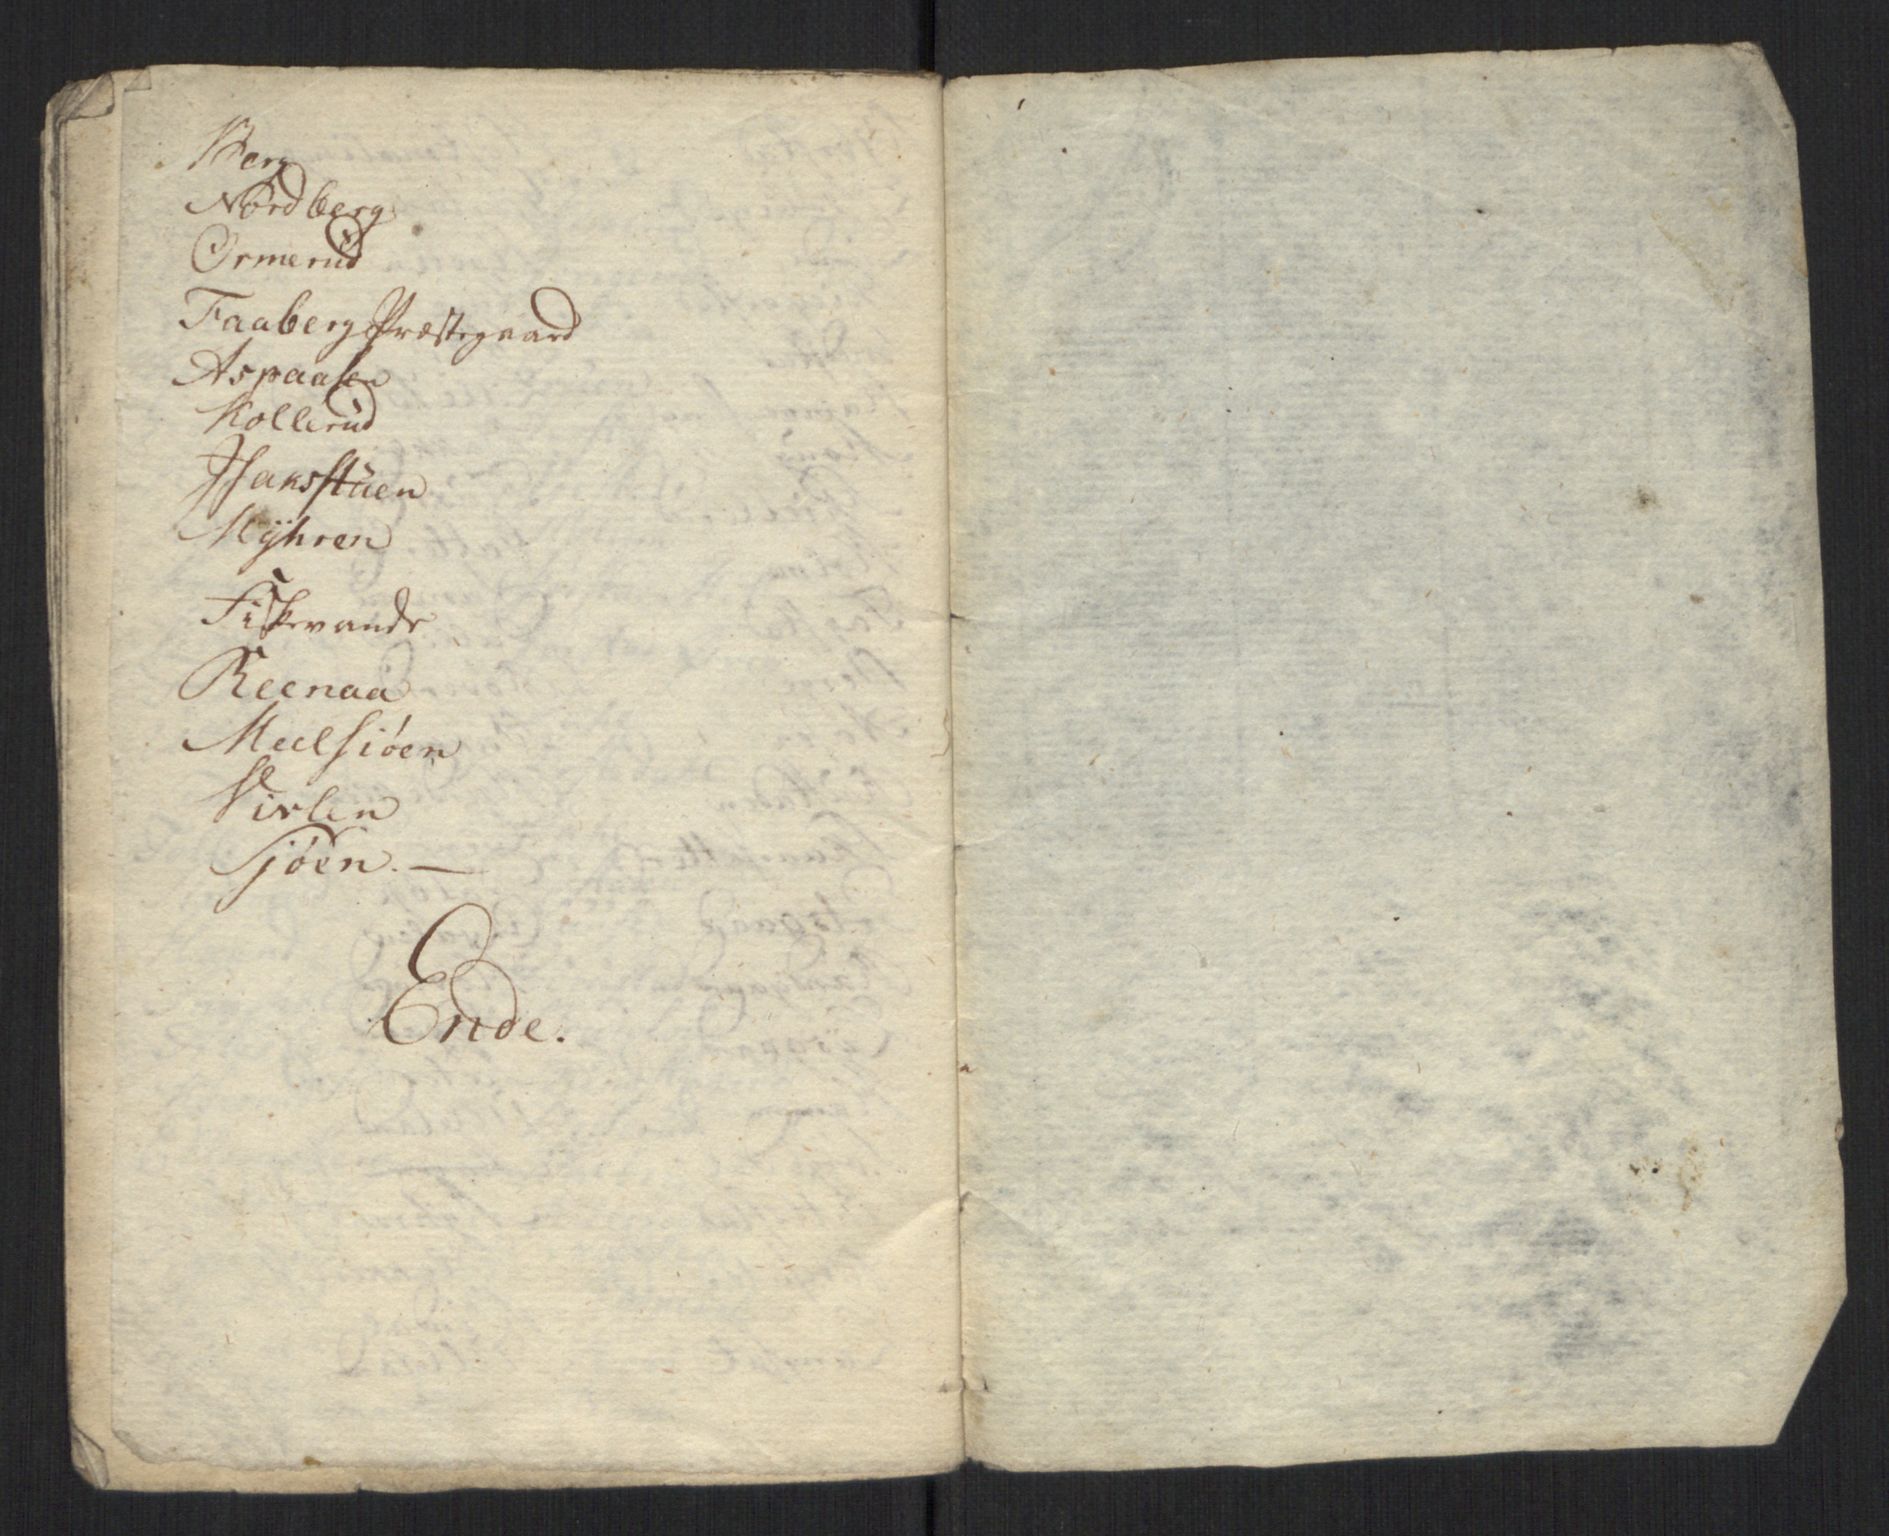 Berg
Nordberg
Ormerud
Faaberg Præstegaard
Aspaalen
Kollerud
Isaksstuen
Myhren
Fiskevande
Reenaa
Meelsiøen
Virlen
Sjøen. —
Ende.